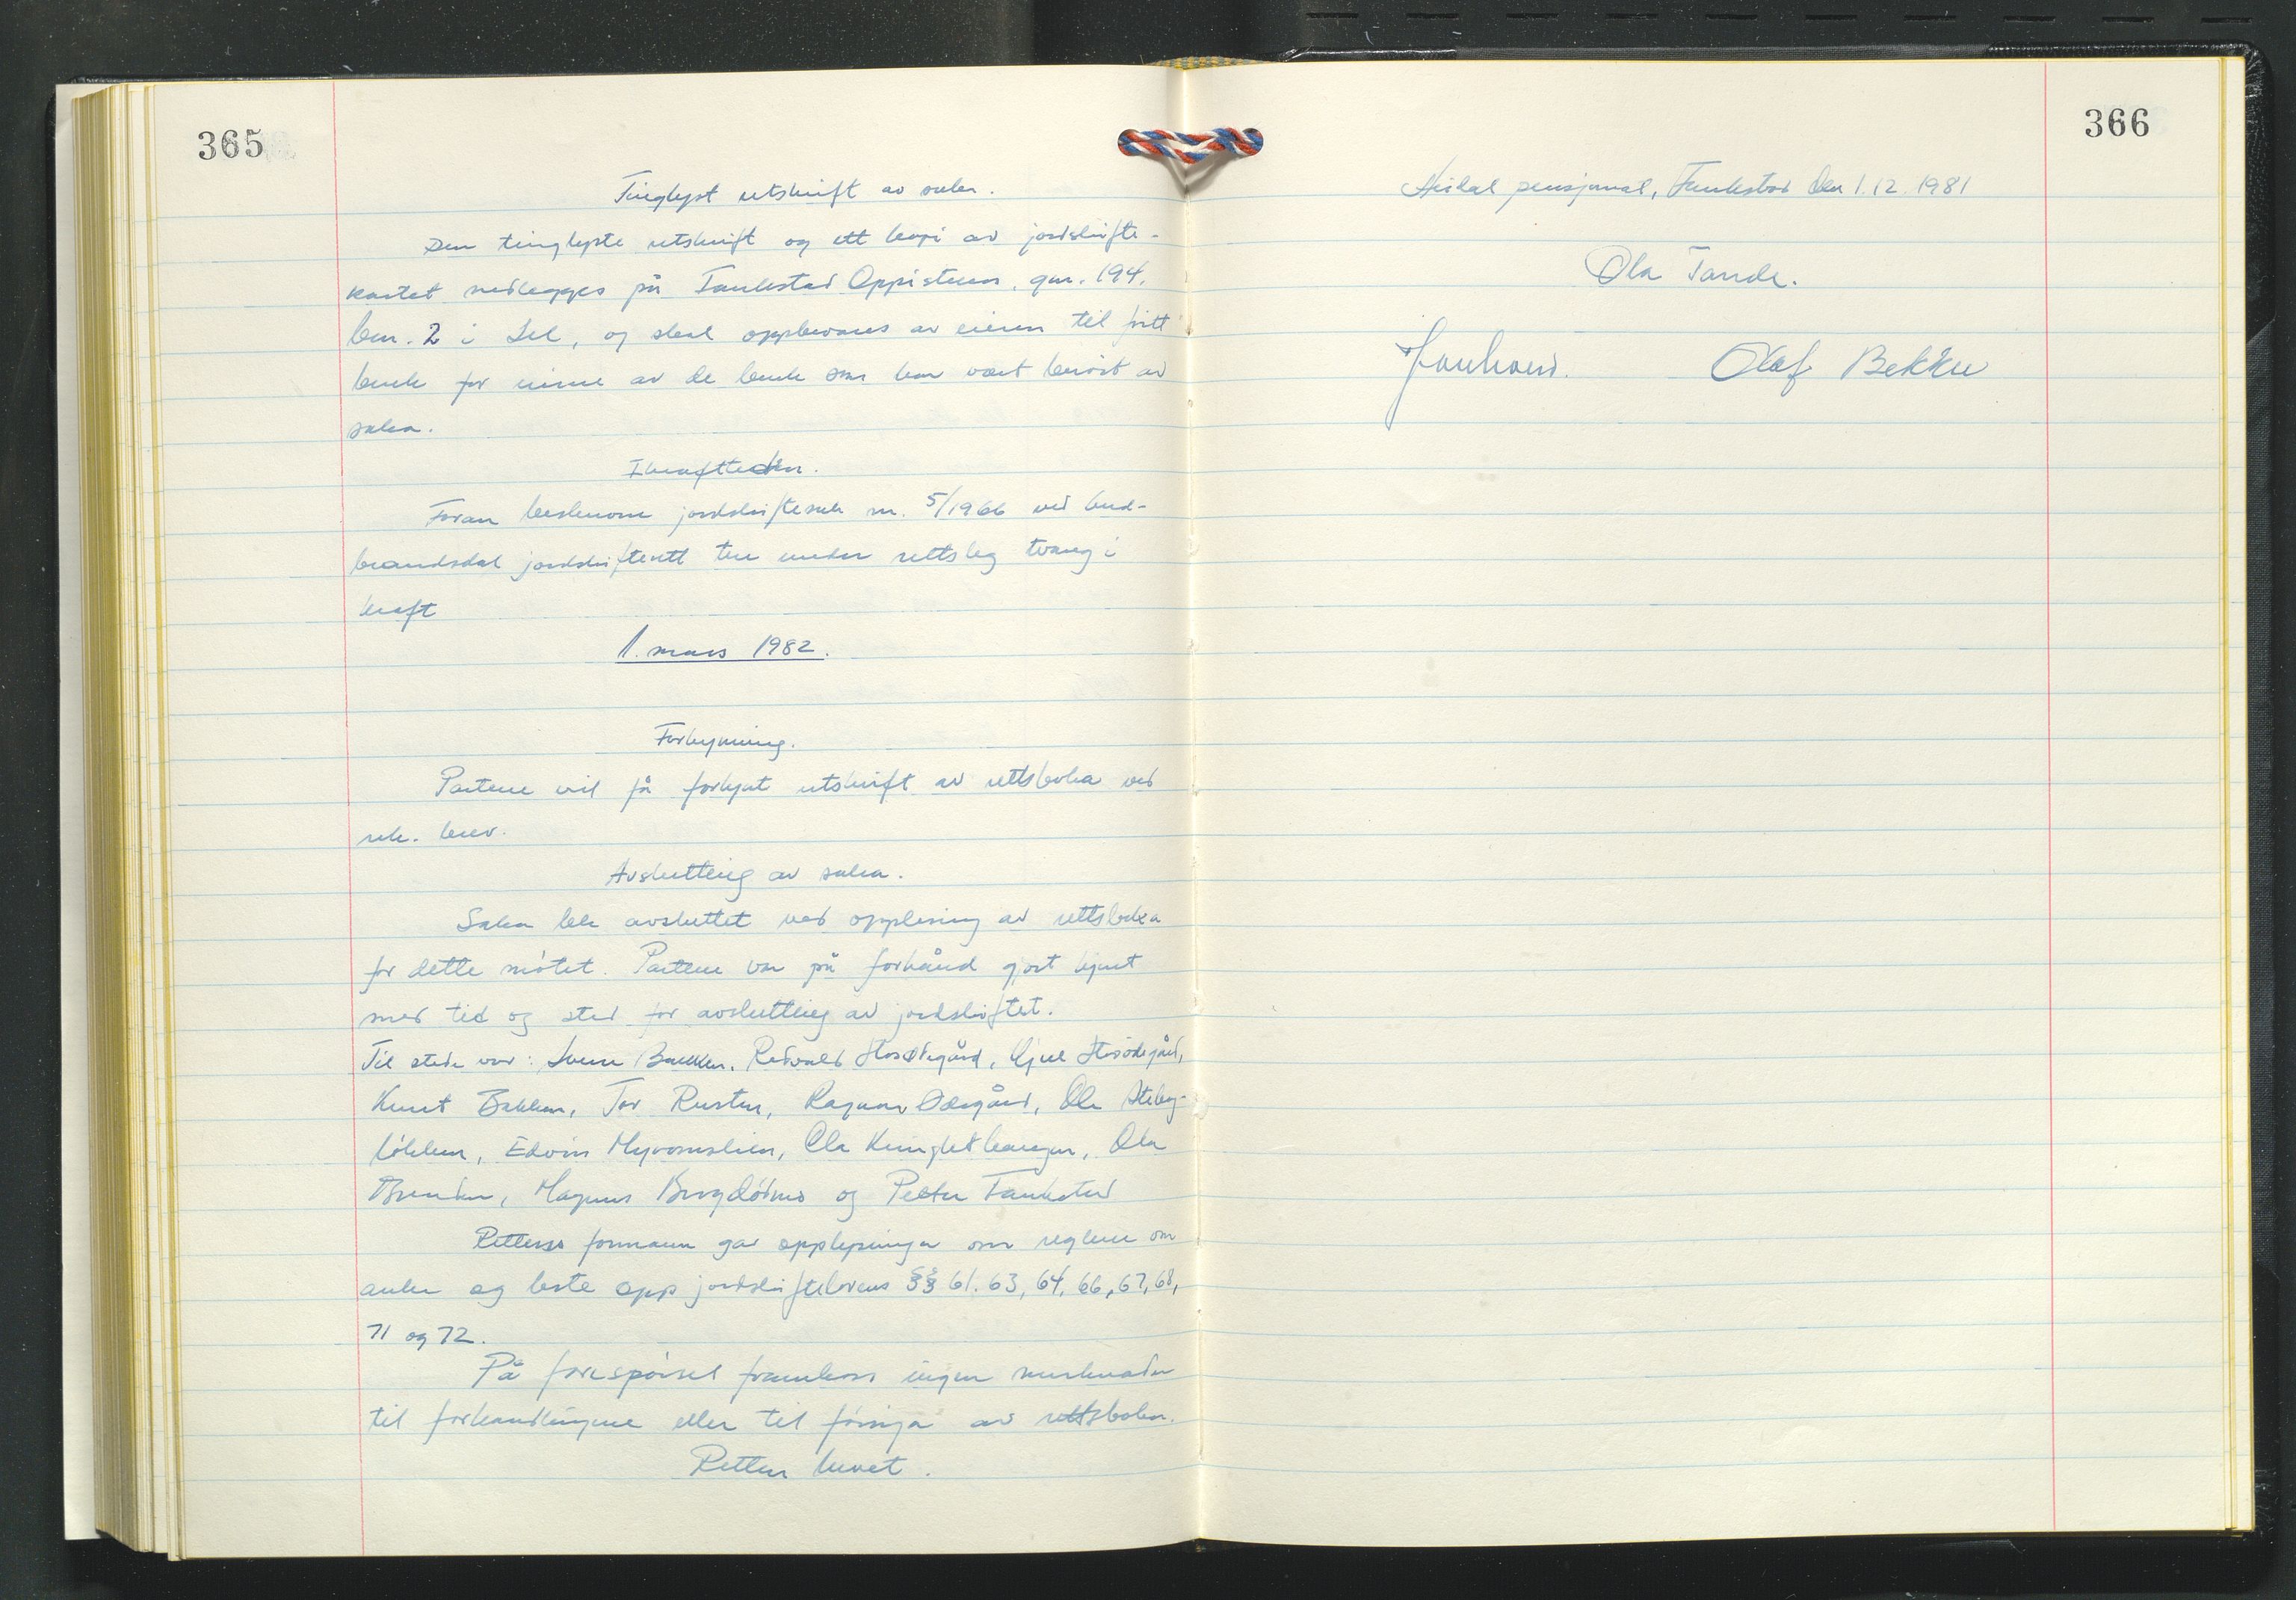 365
Tinglyst utskrift av saka.
Den tinglyste utskrift og ett kopi av jordskifte-
kartet nedlegges på Faukstad Oppistuen, gnr. 194,
bnr. 2 i Sel, og skal oppbevares av eieren til fritt
bruk for eierne av de bruk som har vært berört av
saka.
Ikrafttreden.
Foran beskrevne jordskiftesak nr. 5/1966 ved Gud-
brandsdal jordskifterett trer under rettsleg tvang i
kraft
1. mars 1982.
Forkynning.
Partene vil få forkynt utskrift av rettsboka ved
rek. brev.
Avslutting av saka.
Saka ble avsluttet ved opplesing av rettsboka
for dette mötet. Partene var på forhånd gjort kjent
med tid og sted for avslutting av jordskiftet.
Til stede var: Svein Bakken, Redvald Hosødegård, Kjell Hosødegård,
Knut Bakken, Tor Rusten, Ragnar Ødegård, Ole Stibrg-
lökken, Edvin Myromslien, Ola Kringlethaugen, Ola
Brenden, Magnus Brogdötmo og Petter Faukstad
Rettens formann gav opplysninger om reglene om
anke og leste opp jordskiftelovens §§ 61, 63, 64, 66, 67, 68,
71 og 72.
På forespörsel framkom ingen merknader
til forhandlingene eller til föringa av rettsboka.
Retten hevet.
366
Heidal pensjonat, Faukstad den 1.12.1981
Ola Tande.
Olaf Bekken